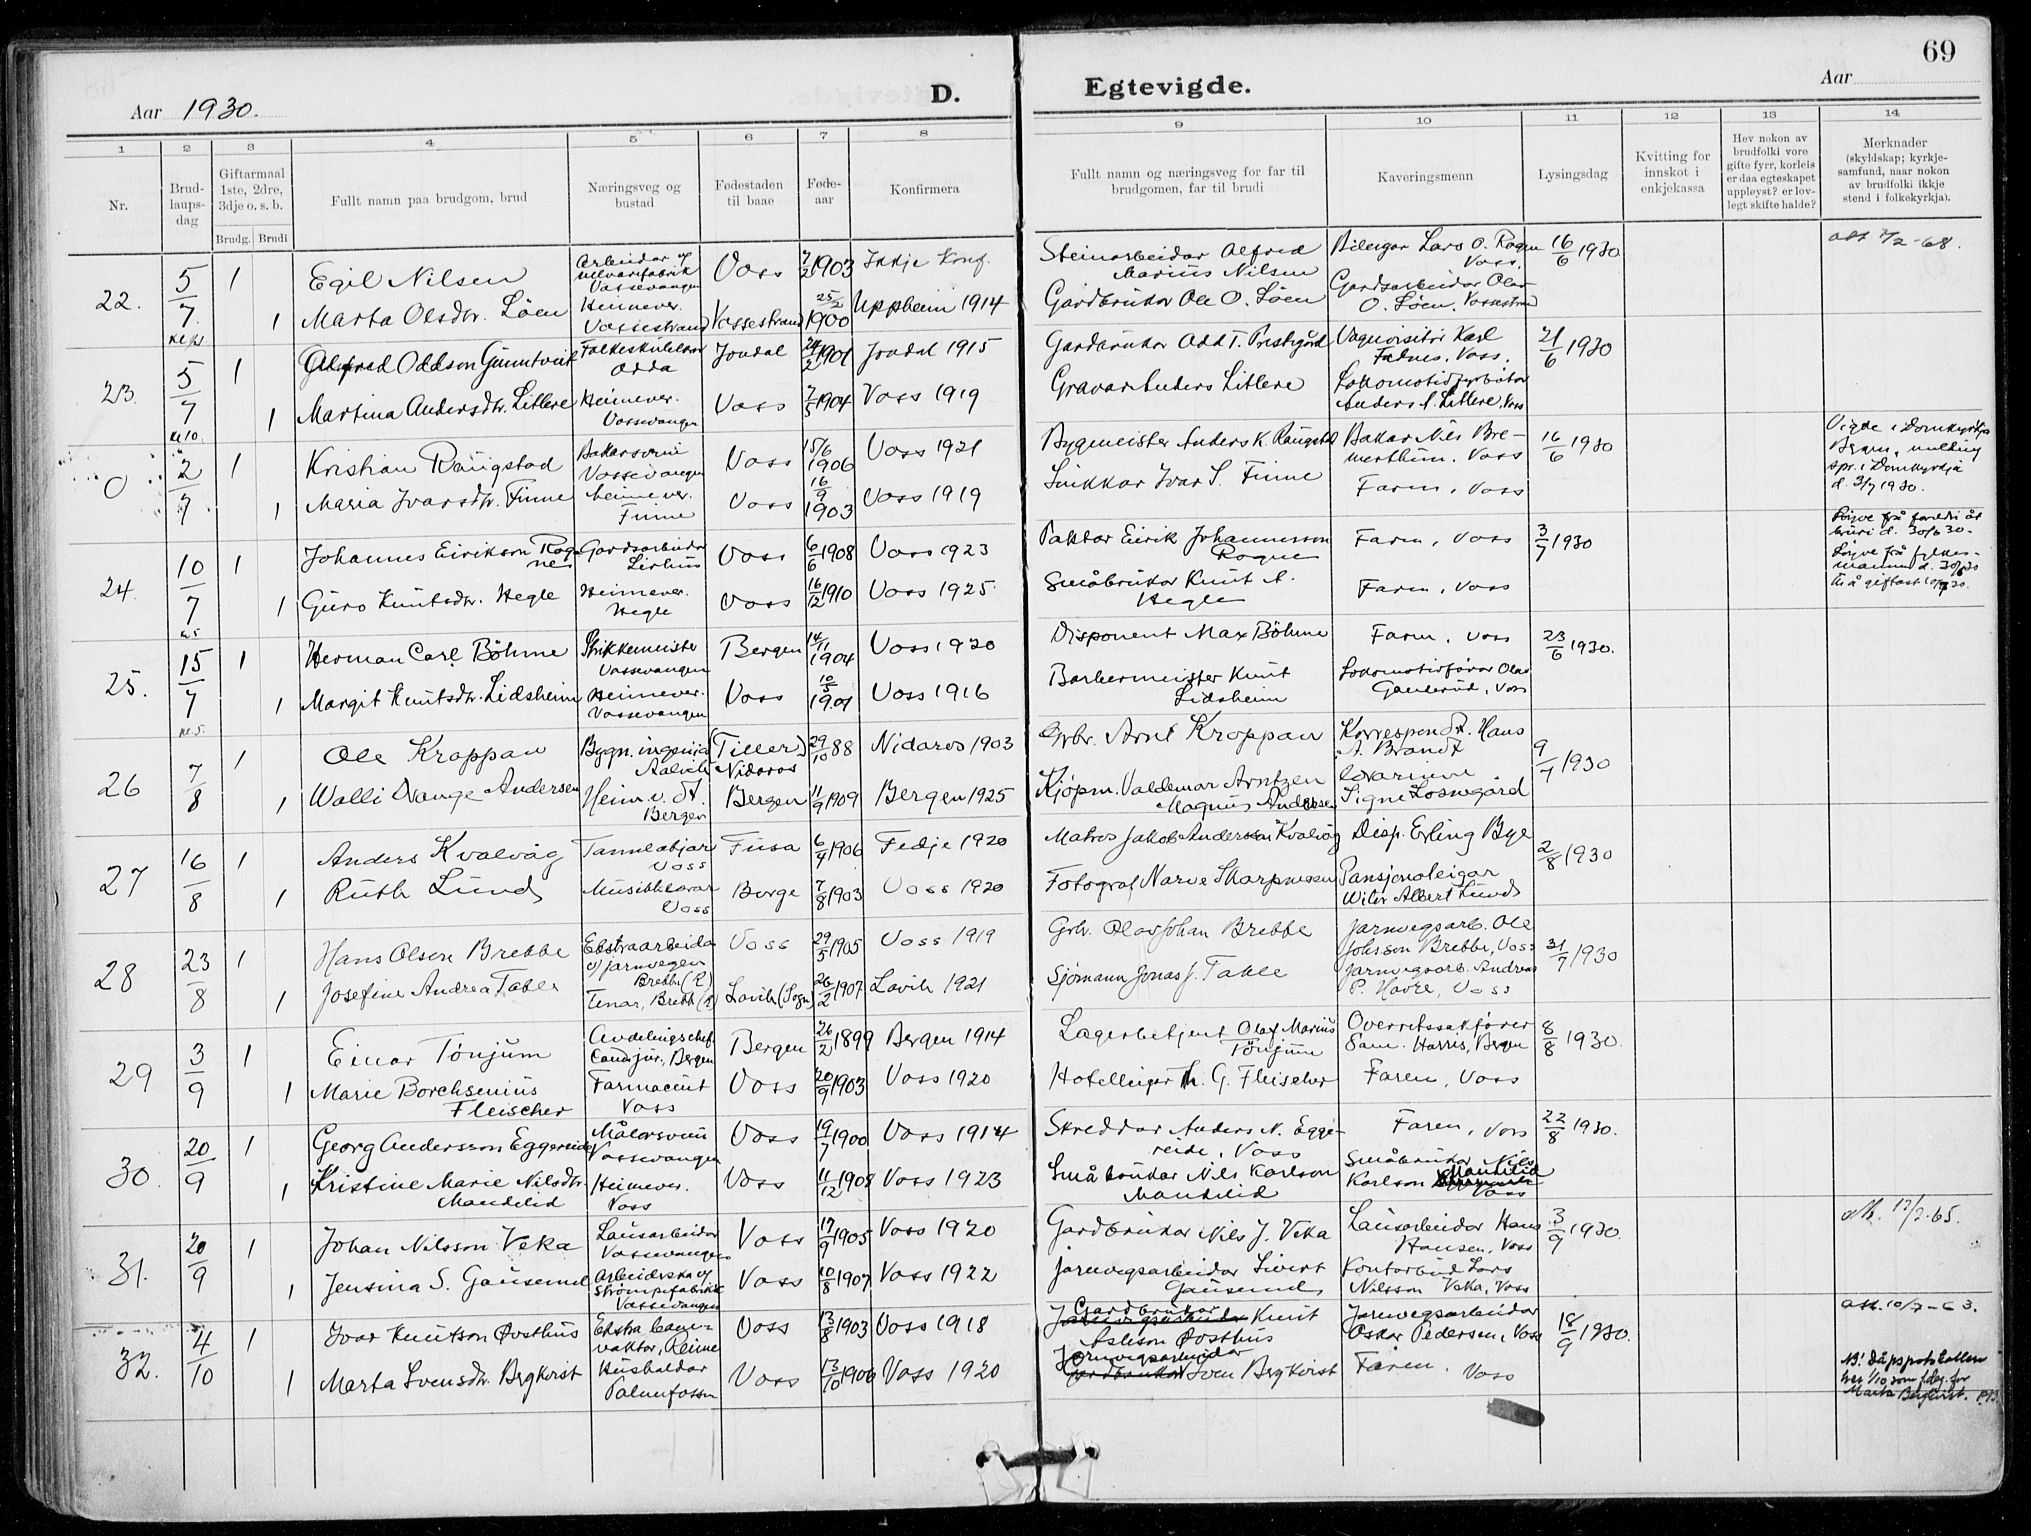 69
Aar 1930.
D.
Egtevigde.
Aar
1 2 3 4 5 6 7 8 9 10 11 12 13 14
Nr.
Brud-
laups-
dag
Giftarmaal
1ste, 2dre,
3dje o. s. b.
Brudg. Brudi
Fullt namn paa brudgom, brud
Næringsveg og
bustad
Fødestaden
til baae
Føde-
aar
Konfirmera
Fullt namn og næringsveg for far til
brudgomen, far til brudi
Kaveringsmenn
Lysingsdag
Kvitting for
innskot i
enkjekassa
Hev nokon av
brudfolki vore
gifte fyrr, korleis
er daa egteskapet
uppløyst? er lov-
legt skifte halde?
Merknader
(skyldskap; kyrkje-
samfund, naar nokon
av brudfolki ikkje
stend i folkekyrkja).
22. 5/7 1 Egil Nilsen
Arbeidar
Vossevangen
Voss 1903 Ikkje Konf.
Steinarbeidar Alfred
Marius Nilsen
Lars O. Rogne
Voss.
16/6 1930
1 Marta Olsdtr. Løen
Heimever.
Vossestrand
Vossestrand 25/2 1900 Uppheim 1914
Gardbrukar Ole O. Løen
Gardsarbeidar Olav
O. Løen, Vossestrand
23. 5/7 1 Oddson
Odda
Jondal 1901 Jondal 1915
Gardbrukar Odd T.
Karl
Voss.
21/6 1930
1 Martina Andersdtr. Litlere
Heimever.
Vossevangen
Voss 1904 Voss 1919
Gravar Anders Litlere
Anders A. Litlere, Voss
0 2/7 1 Kristian Raugstad
Bakarsvein
Vossevangen
Voss 15/6 1906 Voss 1921
Bygmeister Anders K. Raugstad
Bakar Nils Bre-
Voss
16/6 1930
Vigde i Domkyrkja
Bergen, melding
spr. i Domkyrkja
d. 3/7 1930.
1 Maria Ivarsdtr. Finne
heimever.
Finne
Voss 16/9 1903 Voss 1919
Ivar S. Finne
Faren, Voss
24. 10/7 1 Johannes Eirikson Rog-
ne
Gardsarbeidar
Voss 6/6 1908 Voss 1923
Paktar Eirik Johannesson
Rogne
Faren, Voss
3/7 1930
Løyve frå foreldri åt
bruri d. 30/6 30.
Løyve frå fylkes-
mannen d. 30/6 30
1 Guro Knutsdtr. Hegle
Heimever.
Hegle
Voss 16/12 1910 Voss 1925
Småbrukar Knut A.
Hegle
Faren, Voss
25. 15/7 1 Herman Carl Böhme
Strikkemeister
Vossevangen
Bergen 1904 Voss 1920
Disponent Max Böhme
Faren, Voss
23/6 1930.
1 Margit Knutsdtr. Lidsheim
Heimever.
Vossevangen
Voss 1901 Voss 1916
Barbermeister Knut
Lidsheim
Lokomotivførar Olav
Voss
26 7/8 1 Ole Kroppan
Bygn. ingeniør
Aalvik
(Tiller)
Nidaros
29/10 88 Nidaros 1903
Grbr. Arnt Kroppan
Korrespondt. Hans
A. Brandt
9/7 1930
1 Walli Dvange Andersen
Heim. v. dt.
Bergen
Bergen 11/9 1909 Bergen 1925
Kjøpm. Valdemar Arntzen
Magnus Andersen
Signe Losnegård
27 16/8 1 Anders Kvalvåg
Tannlækjar
Voss
Fusa 6/4 1906 Fedje 1920
Matros Jakob Anderson Kvalvåg
Disp. Erling Bye
2/8 1930
1 Ruth Lund
Musikklærar
Voss
Borge 7/8 1903 Voss 1920
Fotograf Narve Skarpmoen
Pansjonateigar
Albert Lund
28 23/8 1 Hans Olsen Brekke
Ekstraarbeidar
v/jarnvegen
Brekke
Voss 29/5 1905 Voss 1919
Grb. Olav Johan Brekke
Jarnvegsarb. Ole
Johsson Brekke, Voss
31/7 1930
1 Josefine Andrea Takle
Tenar, Brekke
Lavik (Sogn) 26/2 1907 Lavik 1921
Sjømann Jonas J. Takle
Jarnvegsarb. Andreas
P. Havre, Voss
29 3/9 1 Einar Tønjum
Avdelingschef
Cand. jur., Bergen
Bergen 26/2 1899 Bergen 1914
Lagerbetjent Olaf Marius
Tønjum
Overretssakfører
Sam. Harris, Bergen
8/8 1930.
1 Marie Borchsenius
Fleischer
Farmaceut
Voss
Voss 20/9 1903 Voss 1920
Hotelleigar Th. G. Fleischer
Faren, Voss
30. 20/9 1 Georg Andersson Eggereide
Målarsvein
Vossevangen
Voss 19/7 1900 Voss 1914
Skreddar Anders N. Egge-
reide, Voss
Faren, Voss
22/8 1930.
1 Kristine Marie Nilsdtr.
Mandelid
Heimever.
Voss
Voss 11/12 1908 Voss 1923
Småbrukar Nils Karlson
Mandelid
Småbrukar Nils
Karlson Mandelid
Voss
31. 20/9 1 Johan Nilsson Veka
Lausarbeidar
Vossevangen
Voss 17/9 1905 Voss 1920
Gardbrukar Nils J. Veka
Lausarbeidar Hans
Hansen, Voss
3/9 1930.
1 Jensina S.
Arbeiderska v/
Strømpefabrikk
Vossevangen
Voss 10/8 1907 Voss 1922
Jarnvegsarbeidar Sivert
Kontorbud Lars
Nilsson Veka, Voss
32. 4/10 1 Ivar Knutson Østhus
Ekstra bane-
vaktar, Reime
Voss 13/8 1903 Voss 1918
Gardbrukar Knut
Østhus
Jarnvegsarbeidar
Oskar Pedersen, Voss
18/9 1930.
1 Marta Svensdtr. Bergkvist
Hushaldar
Palmafossen
Voss 13/10 1906 Voss 1920
Jarnvegsarbeidar
Sven Bergkvist
Faren, Voss
NB! Dåpsprotokollen
hev 1/10 som f.dag for
Marta Bergkvist.